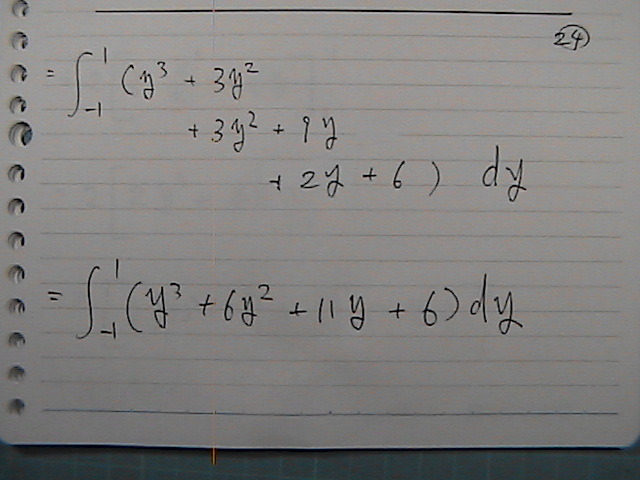 24
= ∫₋₁¹ (y³ + 3y²
+ 3y² + 9y
+ 2y + 6) dy
= ∫₋₁¹ (y³ + 6y² + 11y + 6) dy